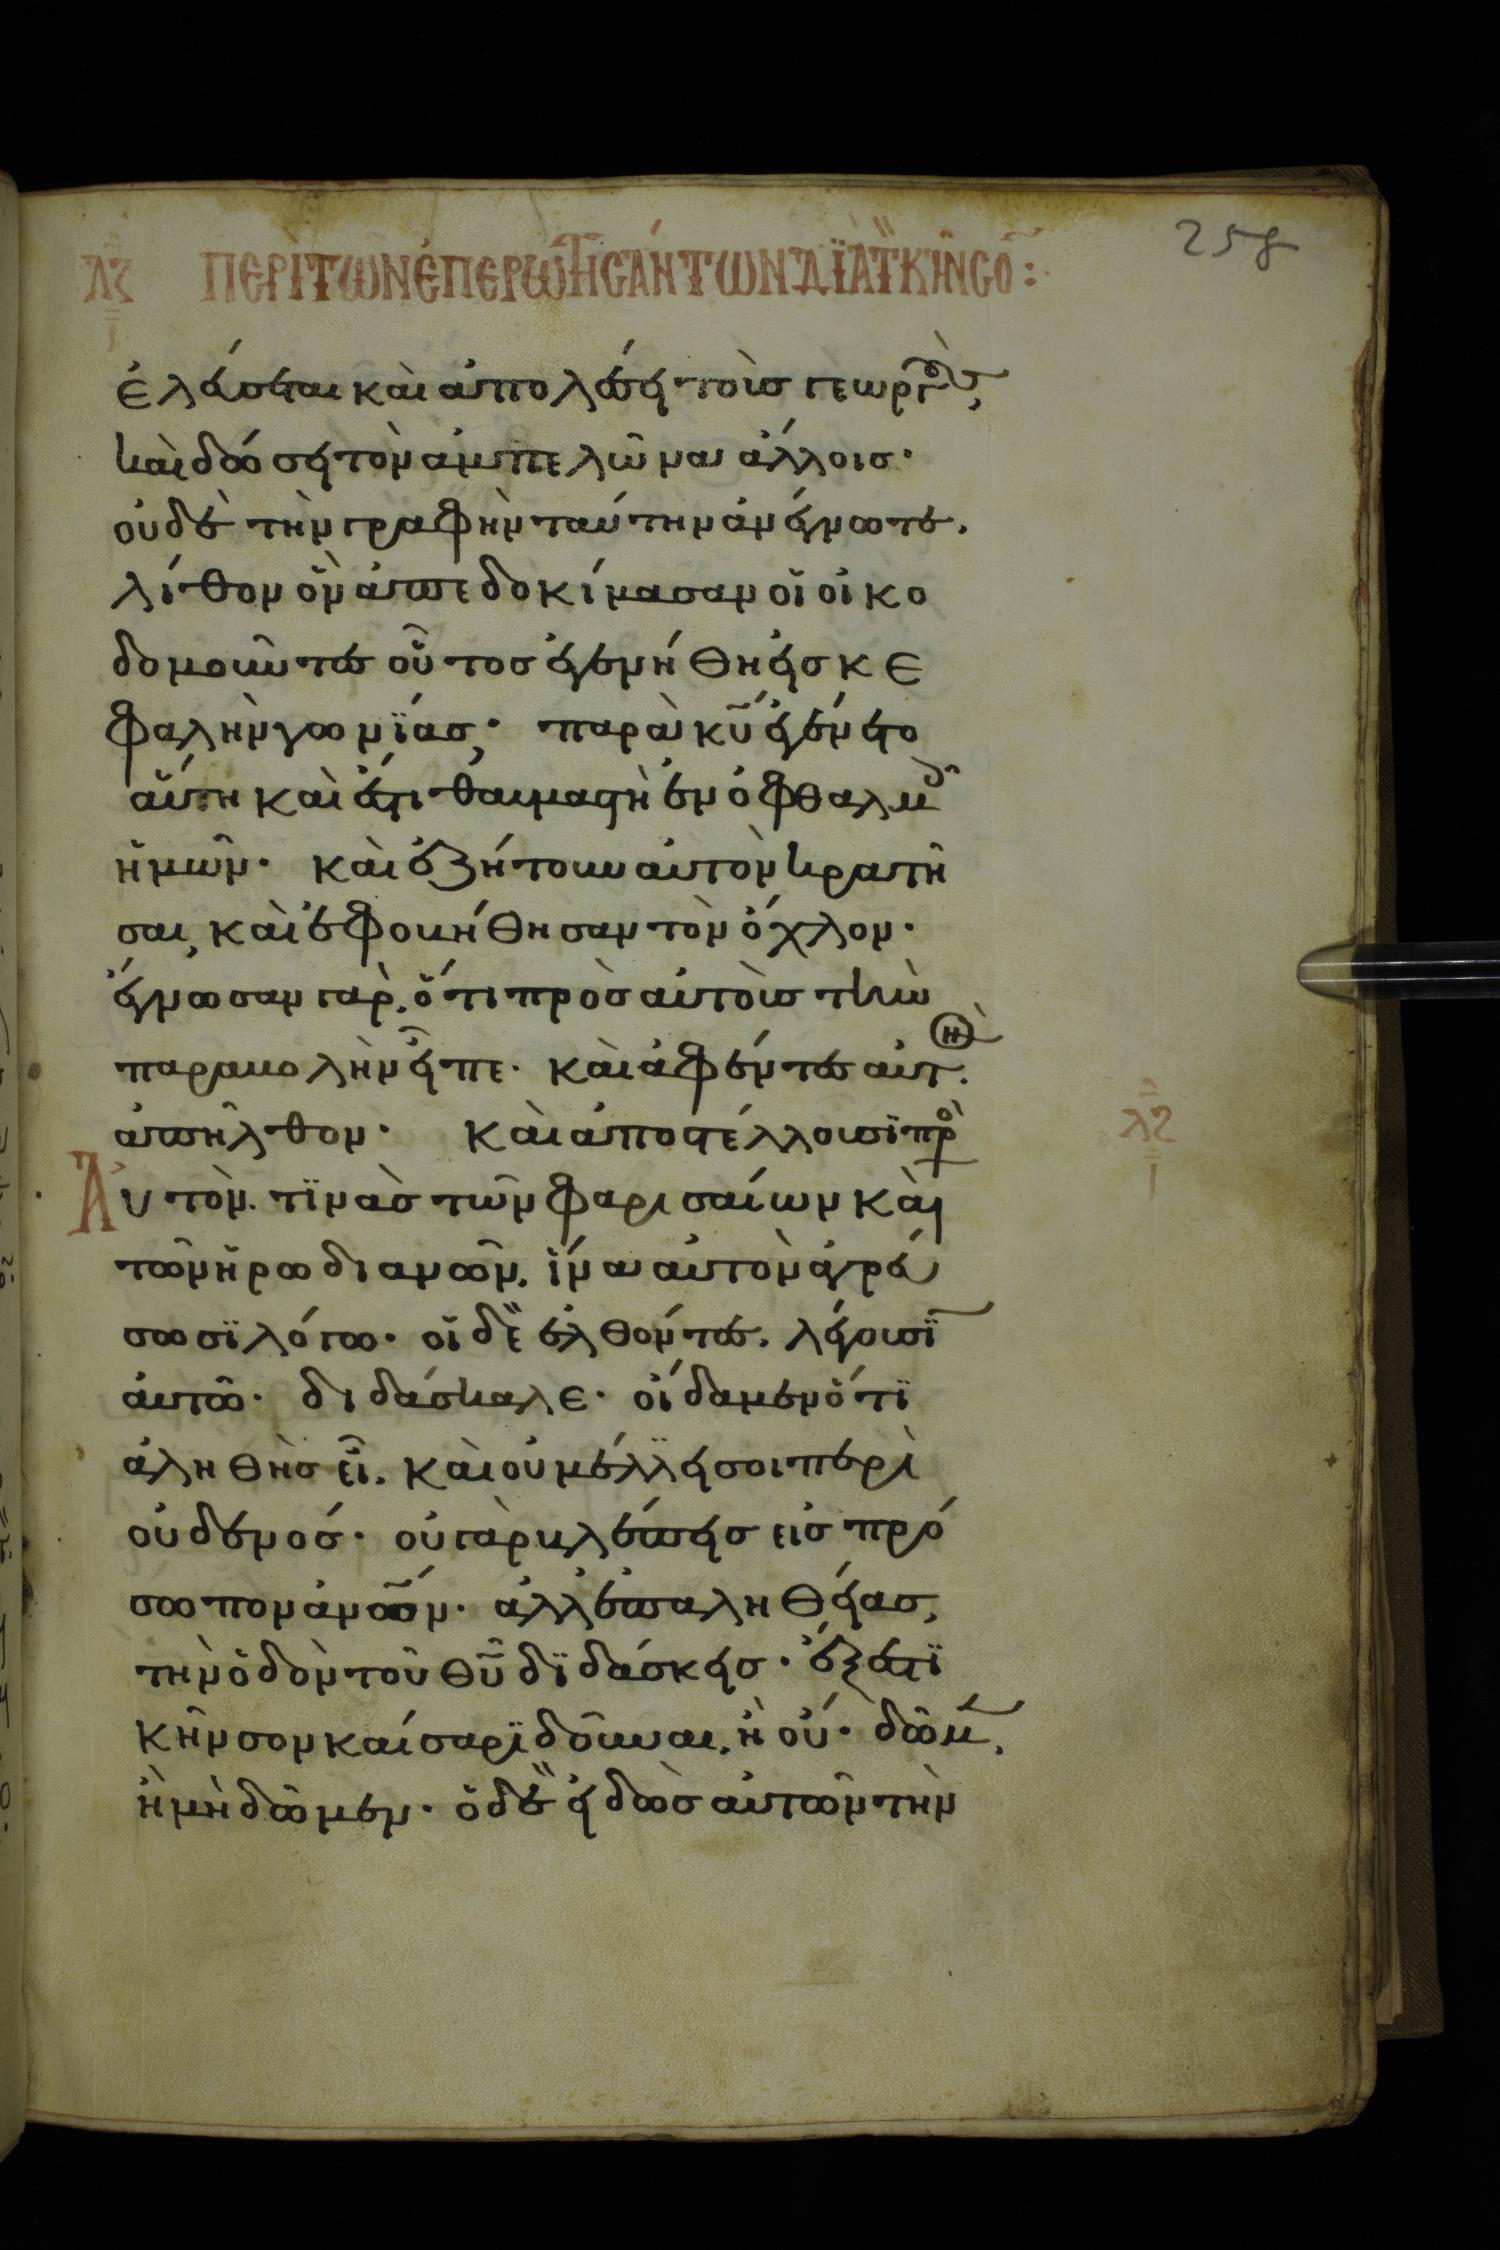 258
λζ ΠΕΡῚ ΤῶΝ ἘΠΕΡΩΤΗCΆΝΤΩΝ ΔΪᾺ Τ ΚῆΝCΟ:
ἐλεύσεται καὶ ἀπολέσει τοὺς γεωργοὺς,
καὶ δώσει τὸν ἀμπελῶνα ἄλλοις·
οὐδὲ τὴν γραφὴν ταύτην ἀνέγνωτε.
λίθον ὃν ἀπεδοκίμασαν οἱ οἰκο
δομοῦντες οὗτος ἐγενήθη εἰς κε
φαλὴν γωνΐας· παρὰ κ̅υ̅ ἐγένετο
αὕτη καὶ ἔστι θαυμαστὴ ἐν ὀφθαλμοῖ
ἡμῶν· καὶ ἐζήτουν αὐτὸν κρατῆ
σαι, καὶ ἐφοβήθησαν τὸν ὄχλον·
ἔγνωσαν γὰρ, ὅτι πρὸς αὐτοὺς τὴν
παραβολὴν εἶπε· καὶ ἀφέντες αὐτ.
ἀπῆλθον· καὶ ἀποστέλλουσϊ πρὸ
Αὐτὸν. τϊνὰς τῶν φαρισαίων καὶ
τῶν ἡρωδιανῶν, ἵνα αὐτὸν ἀγρεύ
σωσϊ λόγω· οἱ δὲ ἐλθόντες, λέγουσϊ
αὐτῶ· διδάσκαλε· οἴδαμεν ὅτϊ
ἀληθὴς εἶ, καὶ οὐ μέλλει σοι περὶ
οὐδενός· οὐ γὰρ βλέπεις εἰς πρό
σωπον ἀνων· ἀλλ ἐπ αληθείας,
τὴν ὁδὸν τοῦ θ̅υ̅ δϊδάσκεις· ἔξεστϊ
κῆνσον καίσαρϊ δοῦναι, ἢ οὔ· δῶμ,
ἢ μὴ δῶμεν· ὁ δὲ εἰδὼς αὐτῶν τὴν
λς